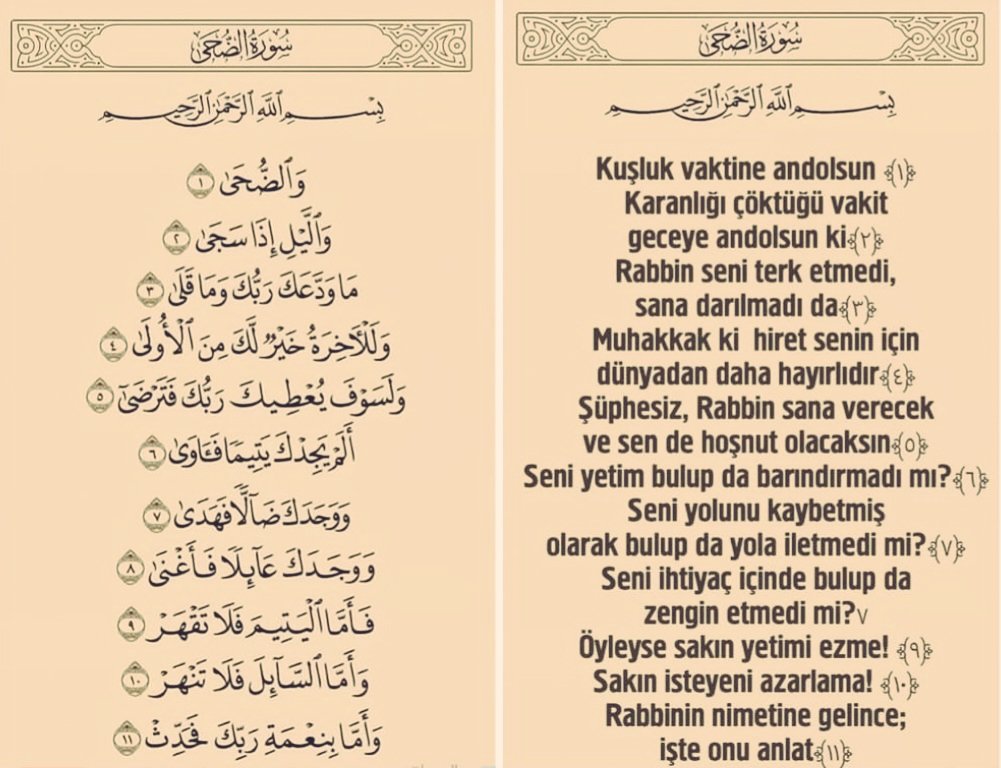 سُورَةُ الضُّحَىٰ
بِسْمِ ٱللَّهِ ٱلرَّحْمَٰنِ ٱلرَّحِيمِ
وَٱلضُّحَىٰ ١
وَٱلَّيْلِ إِذَا سَجَىٰ ٢
مَا وَدَّعَكَ رَبُّكَ وَمَا قَلَىٰ ٣
وَلَلْأَخِرَةُ خَيْرٌ لَّكَ مِنَ ٱلْأُولَىٰ ٤
وَلَسَوْفَ يُعْطِيكَ رَبُّكَ فَتَرْضَىٰٓ ٥
أَلَمْ يَجِدْكَ يَتِيمًا فَـَٔاوَىٰ ٦
وَوَجَدَكَ ضَآلًّا فَهَدَىٰ ٧
وَوَجَدَكَ عَآئِلًا فَأَغْنَىٰ ٨
فَأَمَّا ٱلْيَتِيمَ فَلَا تَقْهَرْ ٩
وَأَمَّا ٱلسَّآئِلَ فَلَا تَنْهَرْ ١٠
وَأَمَّا بِنِعْمَةِ رَبِّكَ فَحَدِّثْ ١١
سُورَةُ الضُّحَىٰ
بِسْمِ ٱللَّهِ ٱلرَّحْمَٰنِ ٱلرَّحِيمِ
Kuşluk vaktine andolsun ﴿١﴾
Karanlığı çöktüğü vakit
geceye andolsun ki﴿٢﴾
Rabbin seni terk etmedi,
sana darılmadı da﴿٣﴾
Muhakkak ki hiret senin için
dünyadan daha hayırlıdır﴿٤﴾
Şüphesiz, Rabbin sana verecek
ve sen de hoşnut olacaksın﴿٥﴾
Seni yetim bulup da barındırmadı mı?﴿٦﴾
Seni yolunu kaybetmiş
olarak bulup da yola iletmedi mi?﴿٧﴾
Seni ihtiyaç içinde bulup da
zengin etmedi mi?٧
Öyleyse sakın yetimi ezme! ﴿٩﴾
Sakın isteyeni azarlama! ﴿١٠﴾
Rabbinin nimetine gelince;
işte onu anlat﴿١١﴾